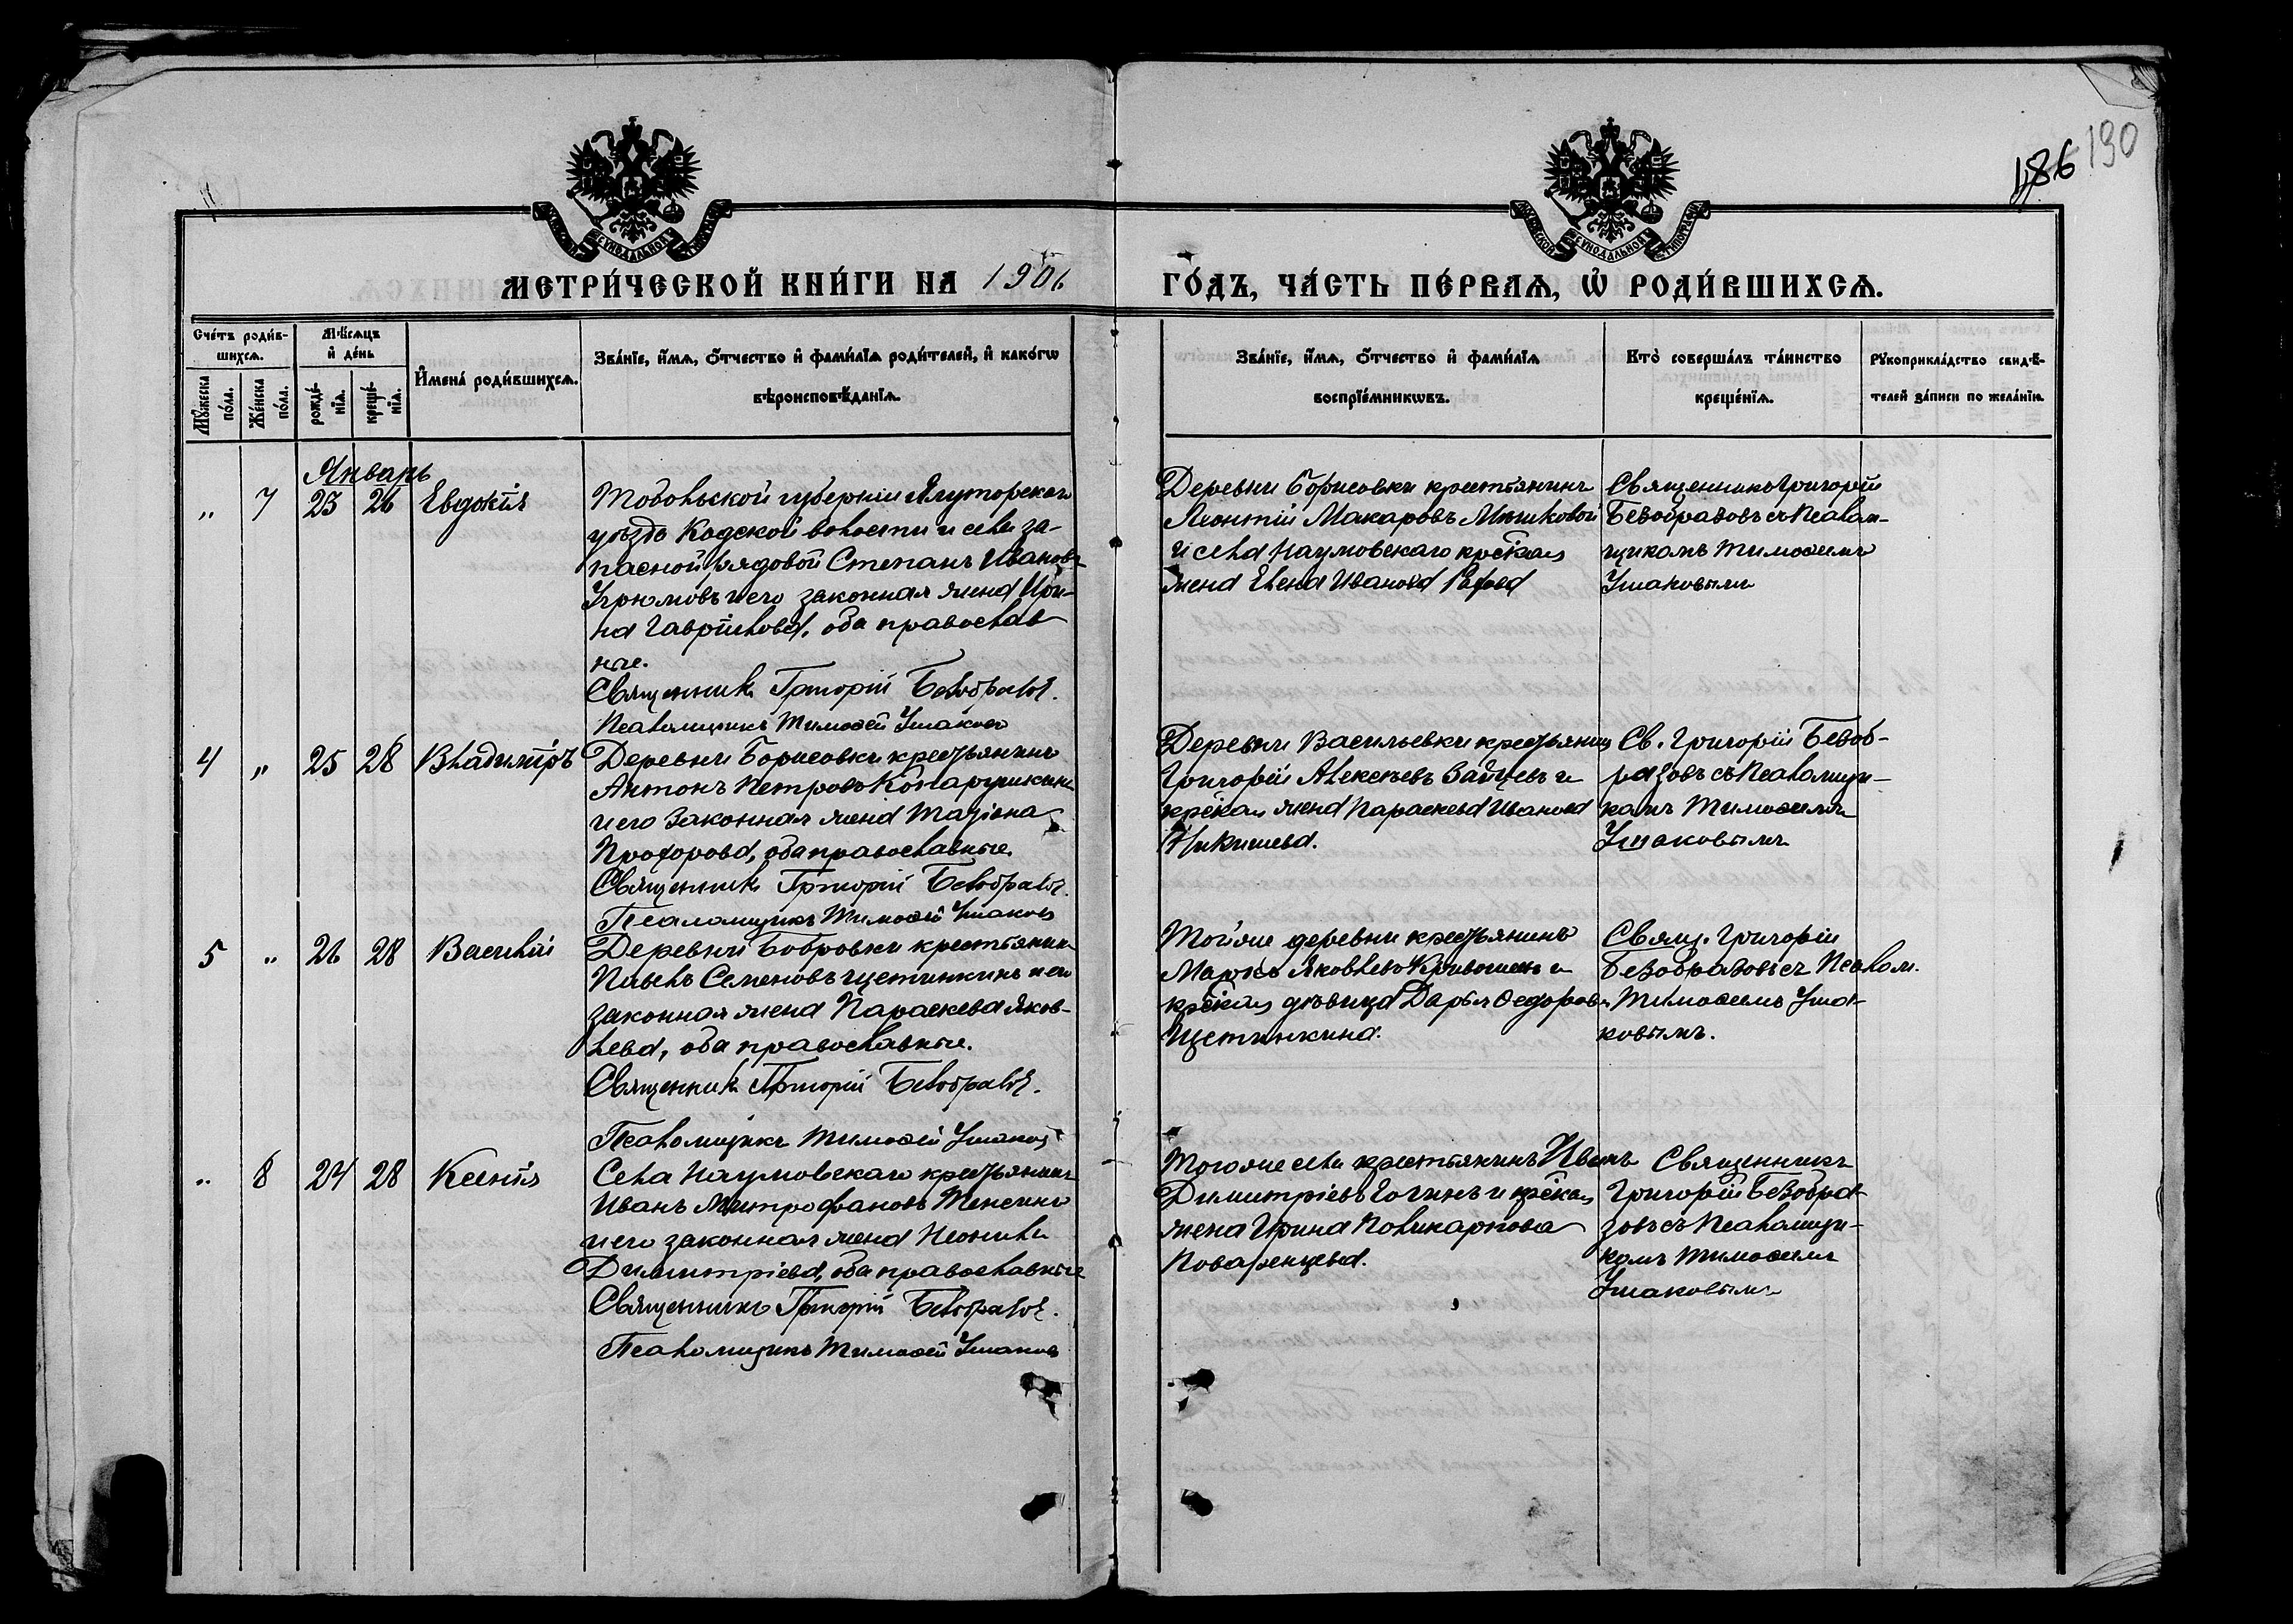 186 190
МОСКОВСКОЙ СѴНОДАЛЬНОЙ ТИПОГРАФІИ
МЕТРИ́ЧЕСКОЙ КНИ́ГИ НА 1906 ГО́ДЪ, ЧА́СТЬ ПЕ́РВАѦ, Ѡ҆ РОДИ́ВШИХСѦ.
Сче́тъ роди́в-
шихсѧ.
Мꙋ́жеска по́ла.
Же́нска по́ла.
Мѣ́сѧцъ
и҆ де́нь
рожде́-
нїѧ.
креще́-
нїѧ.
И҆мена̀ роди́вшихсѧ.
Зва́нїе, и҆́мѧ, ѻ҆́тчество и҆ фами́лїѧ роди́телей, и҆ како́гѡ
вѣроисповѣ́данїѧ.
Зва́нїе, и҆́мѧ, ѻ҆́тчество и҆ фами́лїѧ
воспрїе́мникѡвъ.
Кто̀ соверша́лъ та́инство
креще́нїѧ.
Рꙋкоприкла́дство свидѣ́-
телей за́писи по жела́нїю.
Январь
„ 7 25 26 Евдокія
Тобольской губерніи Ялуторскаго
уѣзда Кодской волости и села за-
пасной рядовой Степанъ Ивановъ
Угрюмовъ и его законная жена Ири-
на Гаврилова, оба православ-
ные.
Священникъ Григорій Безобразовъ.
Псаломщикъ Тимоѳей Ушаковъ
Деревни Борисовки крестьянинъ
Леонтій Макаровъ
и села Наумовскаго крес̃кая
жена Елена Иванова
Священникъ Григорій
Безобразовъ съ Псалом-
щикомъ Тимоѳеемъ
Ушаковымъ
4 „ 25 28 Владиміръ
Деревни Борисовки крестьянинъ
Антонъ Петровъ
и его законная жена Татіана
Прохорова, оба православные.
Священникъ Григорій Безобразовъ.
Псаломщикъ Тимоѳей Ушаковъ
Деревни Васильевки крестьянинъ
Григорій Алексѣевъ Зайцевъ и
крес̃кая жена Параскева Иванова
Никишева.
Св. Григорій Безоб-
разовъ съ Псаломщи-
комъ Тимоѳеемъ
Ушаковымъ
5 „ 26 28 Василій
Деревни Бобровки крестьянинъ
Павелъ Семеновъ Щетинкинъ и его
законная жена Параскева Яков-
лева, оба православные.
Священникъ Григорій Безобразовъ.
Псаломщикъ Тимоѳей Ушаковъ
Той же деревни крестьянинъ
Марко Яковлевъ и
крес̃кая дѣвица Дарья Ѳедорова
Щетинкина.
Свящ. Григорій
Безобразовъ съ Псалом.
Тимоѳеемъ Уша-
ковымъ.
„ 8 24 28 Ксенія
Села Наумовскаго крестьянинъ
Иванъ Митрофановъ
и его законная жена Неонила
Димитріева, оба православные
Священникъ Григорій Безобразовъ.
Псаломщикъ Тимоѳей Ушаковъ
Того же села крестьянинъ Иванъ
Димитріевъ и крес̃кая
жена Ирина Поликарпова
Поваренцева.
Священникъ
Григорій Безобра-
зовъ съ Псаломщи-
комъ Тимоѳеемъ
Ушаковымъ